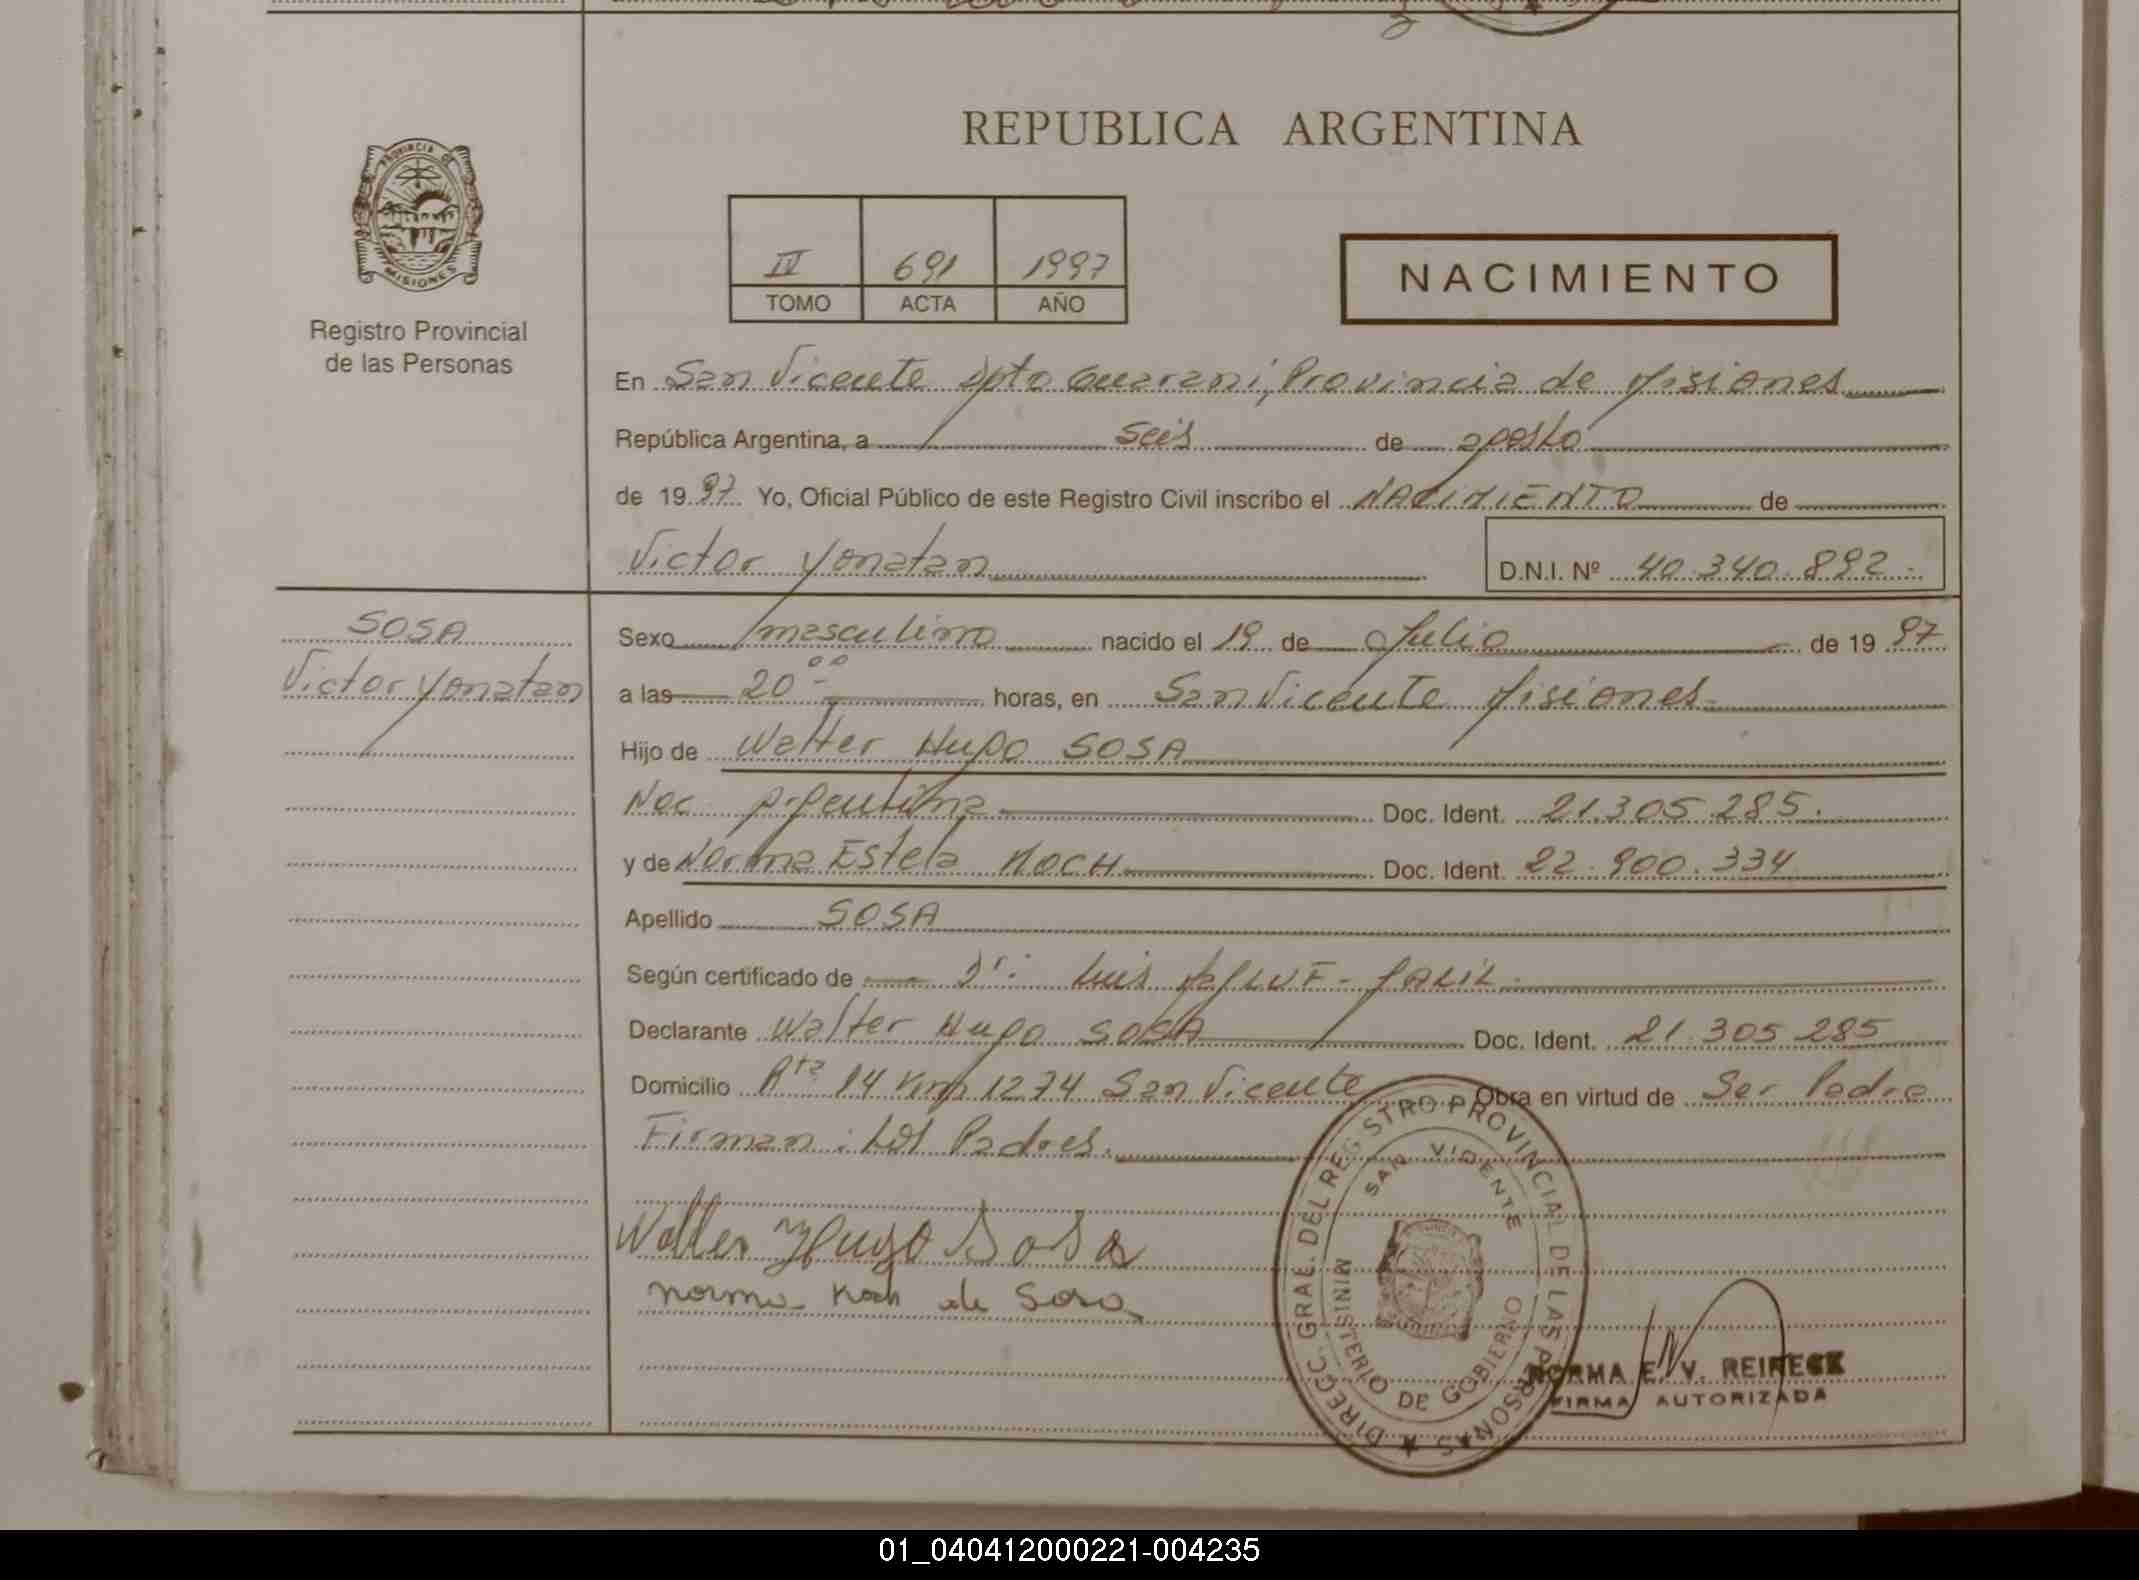 REPUBLICA ARGENTINA
PROVINCIA DE
MISIONES
Registro Provincial
de las Personas
IV 691 1997
TOMO ACTA AÑO
NACIMIENTO
En San Vicente Dpto Guaraní, Provincia de Misiones
República Argentina, a seis de agosto
de 1997 Yo, Oficial Público de este Registro Civil inscribo el NACIMIENTO de
Victor Yonatan D.N.I. Nº 40.340.892.-
SOSA
Victor Yonatan
Sexo masculino nacido el 19 de Julio de 1997
a las 20.00 horas, en San Vicente Misiones
Hijo de Walter Hugo SOSA
Nac. Argentina Doc. Ident. 21.305.285.
y de Norma Estela KOCH Doc. Ident. 22.900.334
Apellido SOSA
Según certificado de Dr. Luis
Declarante Walter Hugo SOSA Doc. Ident. 21.305.285
Domicilio Rta 14 Km 1274 San Vicente Obra en virtud de Ser Padre
Firman: Los Padres.
Walter Hugo Sosa
Norma Koch de Sosa
DIRECC. GRAL. DEL REGISTRO PROVINCIAL DE LAS PERSONAS
SAN VICENTE
MINISTERIO DE GOBIERNO
NORMA E. V. REINECK
FIRMA AUTORIZADA
01_040412000221-004235